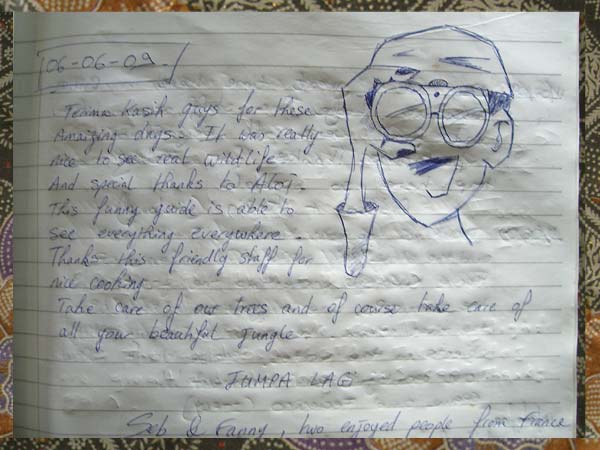 06-06-09
Terima Kasih guys for these
Amaizing days. It was really
nice to see real wildlife
And special thanks to Aloi.
This funny guide is able to
see everything everywhere
Thanks this friendly staff for
nice cooking
Take care of our trees and of course take care of
all your beautiful jungle.
JUMPA LAGi
Seb & Fanny, two enjoyed people from France